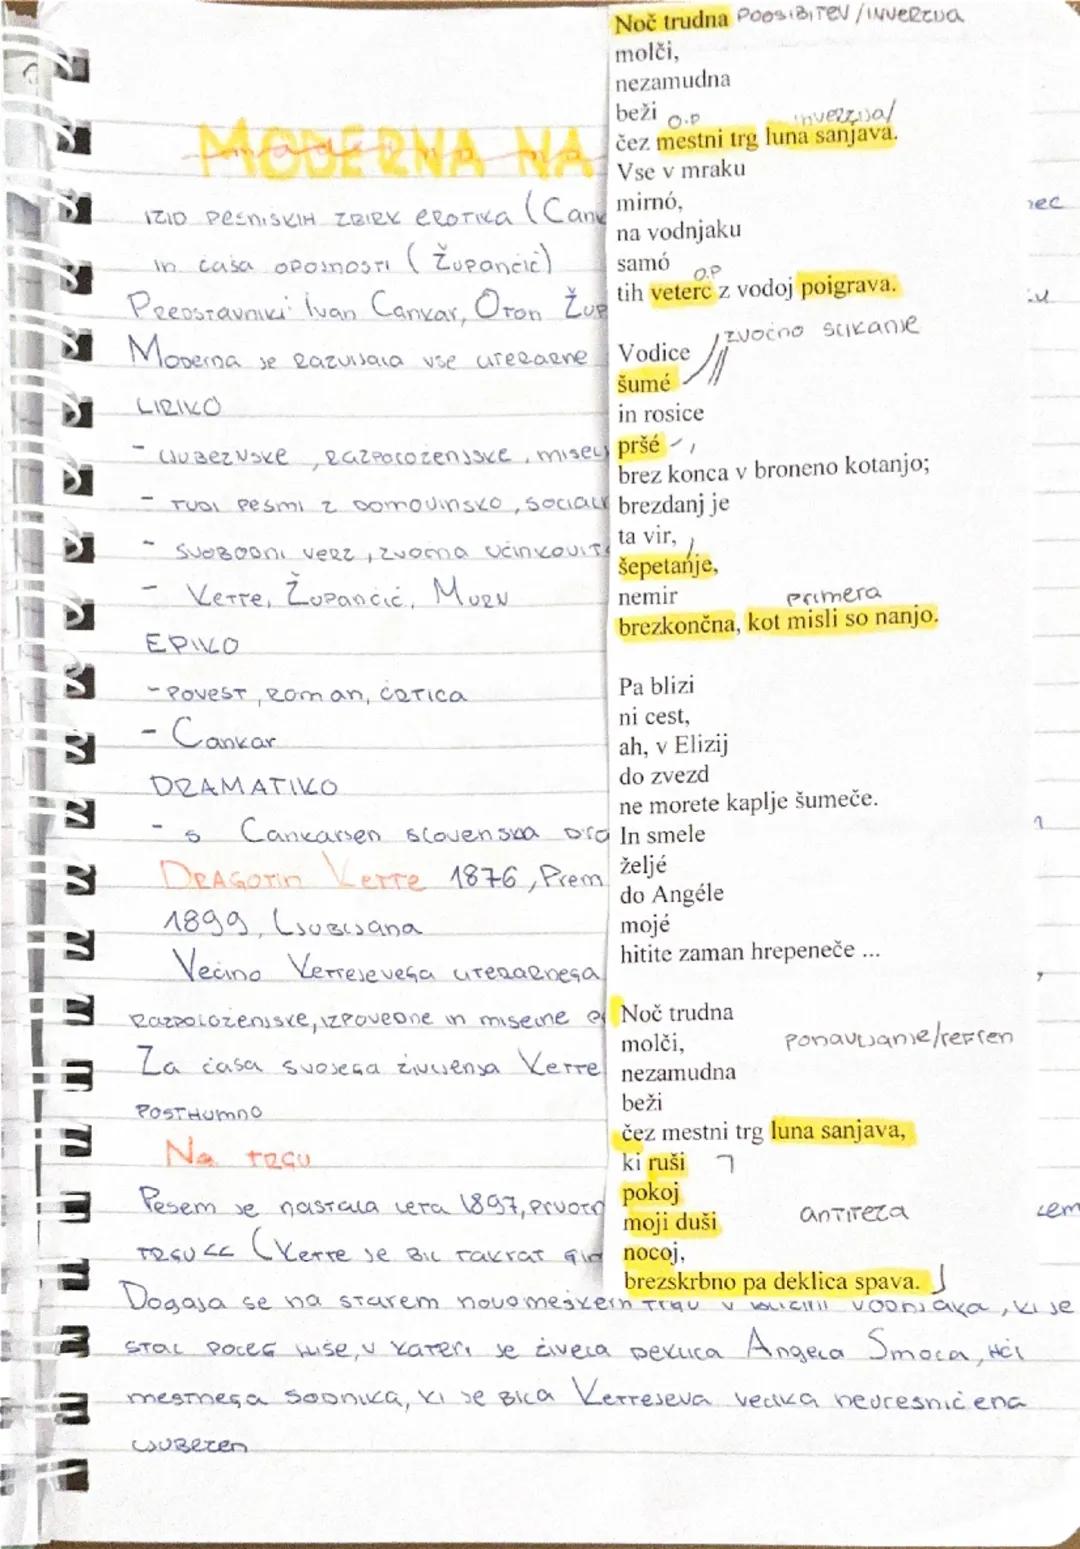 MODERNA NA
IZID PESNIŠKIH ZBIRK EROTIKA (Cank
in čaša opojnosti (Župančič)
Predstavniki: Ivan Cankar, Oton Žup
Moderna je razvijala vse literarne
LIRIKO
- ljubezenske, razpoloženjske, misel
- tudi pesmi z domovinsko, social
- svobodni verz, zvočna učinkovit
- Kette, Župančič, Murn
EPIKO
- povest, roman, črtica
- Cankar
DRAMATIKO
- s Cankarjem slovenska dra
DRAGOTIN Kette 1876, Prem
1899, Ljubljana
Večino Kettejevega literarnega
razpoloženjske, izpovedne in miselne
Za časa svojega življenja Kette
POSTHUMNO
Na trgu
Pesem je nastala leta 1897, prvotn
TRGU << (Kette je bil takrat gim
Dogaja se na starem novomeškem trgu v bližini vodnjaka, ki je
stal poleg hiše, v kateri je živela deklica Angela Smola, hči
mestnega sodnika, ki je bila Kettejeva velika neuresničena
ljubezen
Noč trudna POOSIBITEV/INVERZIJA
molči,
nezamudna
beži O.P inverzija/
čez mestni trg luna sanjava.
Vse v mraku
mirnó,
na vodnjaku
samó
O.P
tih veterc z vodoj poigrava.
zvočno slikanje
Vodice
šumé
in rosice
pršé
brez konca v broneno kotanjo;
brezdanj je
ta vir,
šepetanje,
nemir primera
brezkončna, kot misli so nanjo.
Pa blizi
ni cest,
ah, v Elizij
do zvezd
ne morete kaplje šumeče.
In smele
željé
do Angéle
mojé
hitite zaman hrepeneče ...
Noč trudna
molči, ponavljanje/refren
nezamudna
beži
čez mestni trg luna sanjava,
ki ruši
pokoj
moji duši antiteza
nocoj,
brezskrbno pa deklica spava.